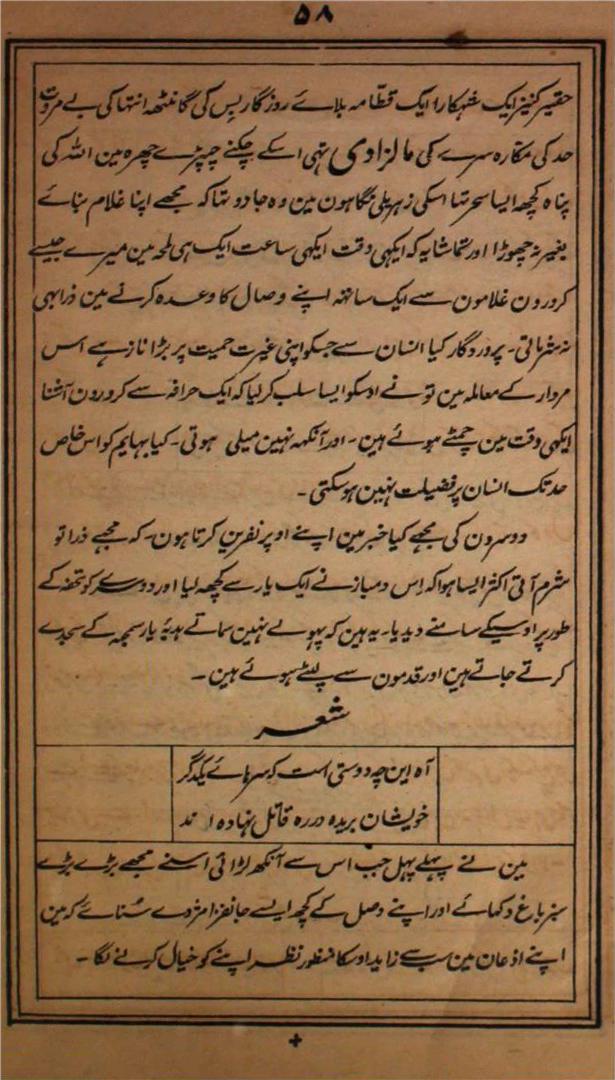 ۵۸
حقیر کنیز ایک شہکارا ایک قطّامہ بلاے روزگار بِس کی گانٹھہ انتہا کی بے مروت
حد کی مکارہ سرے کی مالزادی تہی اسکے چکنے چپڑے چہرہ مین اللہ کی
پناہ کچھہ ایسا سحر تہا اسکی زہریلی نگاہون مین وہ جادو تہا کہ مجھے اپنا غلام بناے
بغیر نہ چھوڑا اور تماشا یہ کہ ایکہی وقت ایکہی ساعت ایک ہی لمحہ مین میرے جیسے
کرورون غلامون سے ایک ساتھہ اپنے وصال کا وعدہ کرنے مین ذرا بہی
نہ شرماتی۔ پروردگار کیا انسان سے جسکو اپنی غیرت حمیت پر بڑا ناز ہے اس
مردار کے معاملہ مین تونے اوسکو ایسا سلب کر لیا کہ ایک حرافہ سے کرورون آشنا
ایکہی وقت مین چمٹے ہوئے ہین۔ اور آنکہہ نہین میلی ہوتی۔ کیا بہایم کو اس خاص
حد تک انسان پر فضیلت نہین ہو سکتی۔
دوسرون کی مجھے کیا خبر مین اپنے اوپر نفرین کرتا ہون۔ کہ مجہے ذرا تو
شرم آتی اکثر ایسا ہوا کہ اِس دمباز نے ایک یار سے کچھہ لیا اور دوسرے کو تحفہ کے
طور پر اوسیکے سامنے دیدیا۔ یہ ہین کہ پہولے نہین سماتے ہدیۂ یار سمجہہ کے سجدے
کرتے جاتے ہین اور قدمون سے لپٹے ہوئے ہین۔
شعر
آہ این چہ دوستی است کہ سرہاے یکدگر
خویشان بریدہ در رہ قاتل نہادہ اند
مین نے پہلے پہل جب اس سے آنکھ لڑائی اسنے مجھے بڑے بڑے
سبز باغ دکہائے اور اپنے وصل کے کچھ ایسے جانفزا مژدے سُنائے کہ مین
اپنے اذعان مین سب سے زاید اوسکا منظور نظر اپنے کو خیال کرنے لگا۔